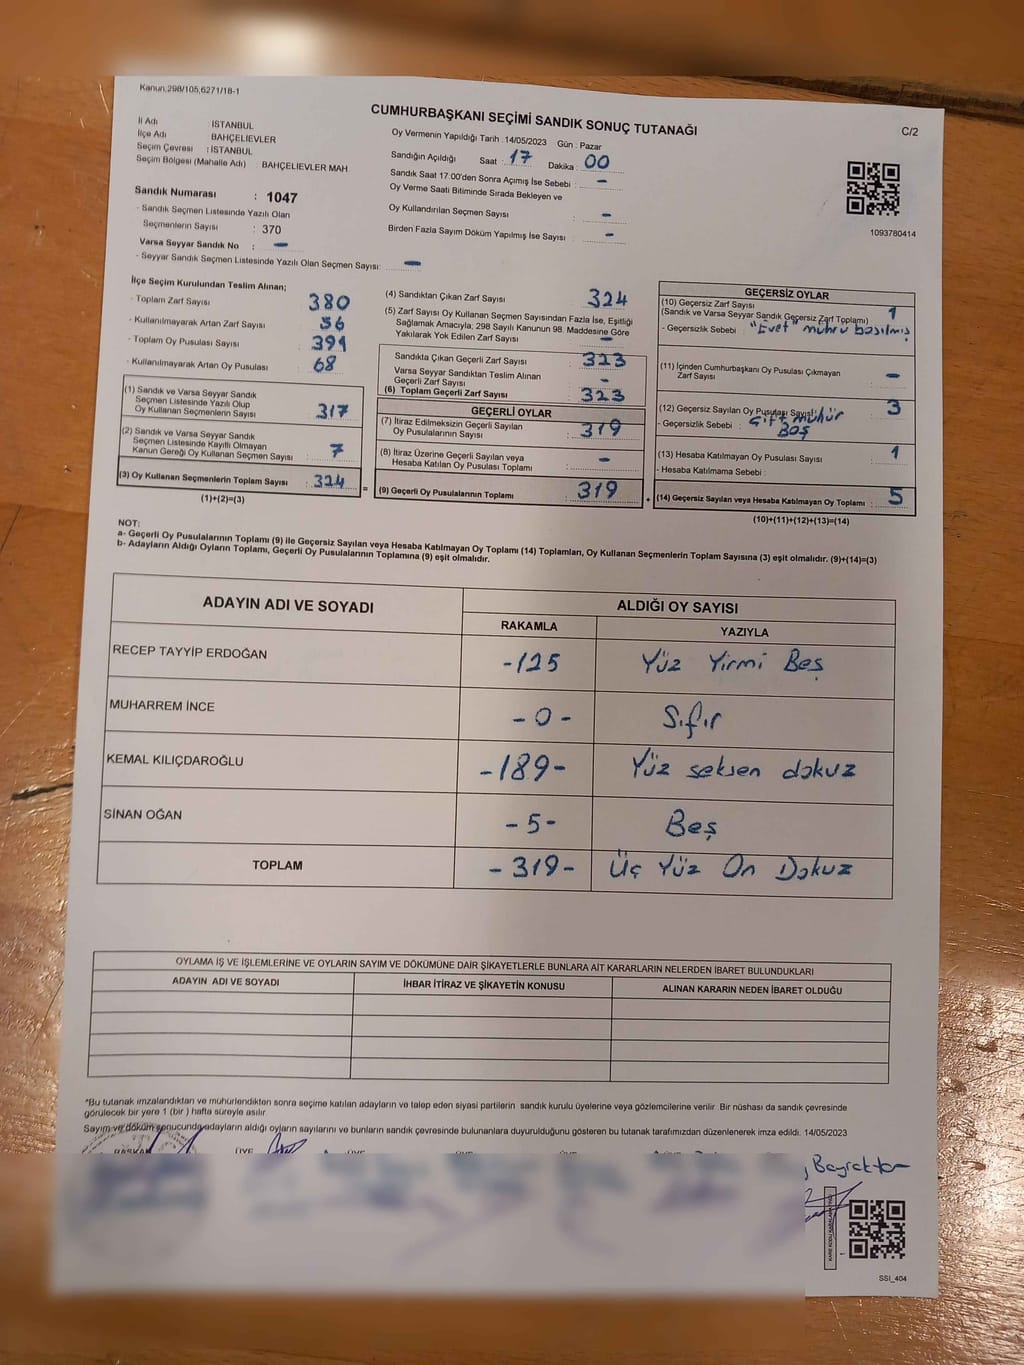 Kanun,298/105,6271/18-1
CUMHURBAŞKANI SEÇİMİ SANDIK SONUÇ TUTANAĞI
C/2
İl Adı İSTANBUL
İlçe Adı BAHÇELİEVLER
Seçim Çevresi : İSTANBUL
Seçim Bölgesi (Mahalle Adı) BAHÇELİEVLER MAH
Sandık Numarası : 1047
- Sandık Seçmen Listesinde Yazılı Olan
Seçmenlerin Sayısı : 370
Varsa Seyyar Sandık No : -
- Seyyar Sandık Seçmen Listesinde Yazılı Olan Seçmen Sayısı: -
Oy Vermenin Yapıldığı Tarih : 14/05/2023 Gün : Pazar
Sandığın Açıldığı Saat : 17 Dakika : 00
Sandık Saat 17:00'den Sonra Açımış İse Sebebi : -
Oy Verme Saati Bitiminde Sırada Bekleyen ve
Oy Kullandırılan Seçmen Sayısı : -
Birden Fazla Sayım Döküm Yapılmış İse Sayısı : -
1093780414
İlçe Seçim Kurulundan Teslim Alınan;
- Toplam Zarf Sayısı 380
- Kullanılmayarak Artan Zarf Sayısı 56
- Toplam Oy Pusulası Sayısı 391
- Kullanılmayarak Artan Oy Pusulası 68
(1) Sandık ve Varsa Seyyar Sandık
Seçmen Listesinde Yazılı Olup
Oy Kullanan Seçmenlerin Sayısı : 317
(2) Sandık ve Varsa Seyyar Sandık
Seçmen Listesinde Kayıtlı Olmayan
Kanun Gereği Oy Kullanan Seçmen Sayısı : 7
(3) Oy Kullanan Seçmenlerin Toplam Sayısı : 324
(1)+(2)=(3)
=
(4) Sandıktan Çıkan Zarf Sayısı : 324
(5) Zarf Sayısı Oy Kullanan Seçmen Sayısından Fazla İse, Eşitliği
Sağlamak Amacıyla; 298 Sayılı Kanunun 98. Maddesine Göre
Yakılarak Yok Edilen Zarf Sayısı : -
Sandıkta Çıkan Geçerli Zarf Sayısı : 323
Varsa Seyyar Sandıktan Teslim Alınan
Geçerli Zarf Sayısı : -
(6) Toplam Geçerli Zarf Sayısı : 323
GEÇERLİ OYLAR
(7) İtiraz Edilmeksizin Geçerli Sayılan
Oy Pusulalarının Sayısı : 319
(8) İtiraz Üzerine Geçerli Sayılan veya
Hesaba Katılan Oy Pusulası Toplamı : -
(9) Geçerli Oy Pusulalarının Toplamı : 319
+
GEÇERSİZ OYLAR
(10) Geçersiz Zarf Sayısı
(Sandık ve Varsa Seyyar Sandık Geçersiz Zarf Toplamı) : 1
- Geçersizlik Sebebi : "Evet" mührü basılmış
(11) İçinden Cumhurbaşkanı Oy Pusulası Çıkmayan
Zarf Sayısı : -
(12) Geçersiz Sayılan Oy Pusulası Sayısı : 3
- Geçersizlik Sebebi : Çift mühür
Boş
(13) Hesaba Katılmayan Oy Pusulası Sayısı : 1
- Hesaba Katılmama Sebebi :
(14) Geçersiz Sayılan veya Hesaba Katılmayan Oy Toplamı : 5
(10)+(11)+(12)+(13)=(14)
NOT:
a- Geçerli Oy Pusulalarının Toplamı (9) ile Geçersiz Sayılan veya Hesaba Katılmayan Oy Toplamı (14) Toplamları, Oy Kullanan Seçmenlerin Toplam Sayısına (3) eşit olmalıdır. (9)+(14)=(3)
b- Adayların Aldığı Oyların Toplamı, Geçerli Oy Pusulalarının Toplamına (9) eşit olmalıdır.
ADAYIN ADI VE SOYADI ALDIĞI OY SAYISI
RAKAMLA YAZIYLA
RECEP TAYYİP ERDOĞAN -125 Yüz Yirmi Beş
MUHARREM İNCE -0- Sıfır
KEMAL KILIÇDAROĞLU -189- Yüz seksen dokuz
SİNAN OĞAN -5- Beş
TOPLAM -319- Üç Yüz On Dokuz
OYLAMA İŞ VE İŞLEMLERİNE VE OYLARIN SAYIM VE DÖKÜMÜNE DAİR ŞİKAYETLERLE BUNLARA AİT KARARLARIN NELERDEN İBARET BULUNDUKLARI
ADAYIN ADI VE SOYADI İHBAR İTİRAZ VE ŞİKAYETİN KONUSU ALINAN KARARIN NEDEN İBARET OLDUĞU
*Bu tutanak imzalandıktan ve mühürlendikten sonra seçime katılan adayların ve talep eden siyasi partilerin sandık kurulu üyelerine veya gözlemcilerine verilir. Bir nüshası da sandık çevresinde
görülecek bir yere 1 (bir) hafta süreyle asılır.
Sayım ve döküm sonucunda adayların aldığı oyların sayılarını ve bunların sandık çevresinde bulunanlara duyurulduğunu gösteren bu tutanak tarafımızdan düzenlenerek imza edildi. 14/05/2023
BAŞKAN ÜYE
Bayraktar
SSI_404